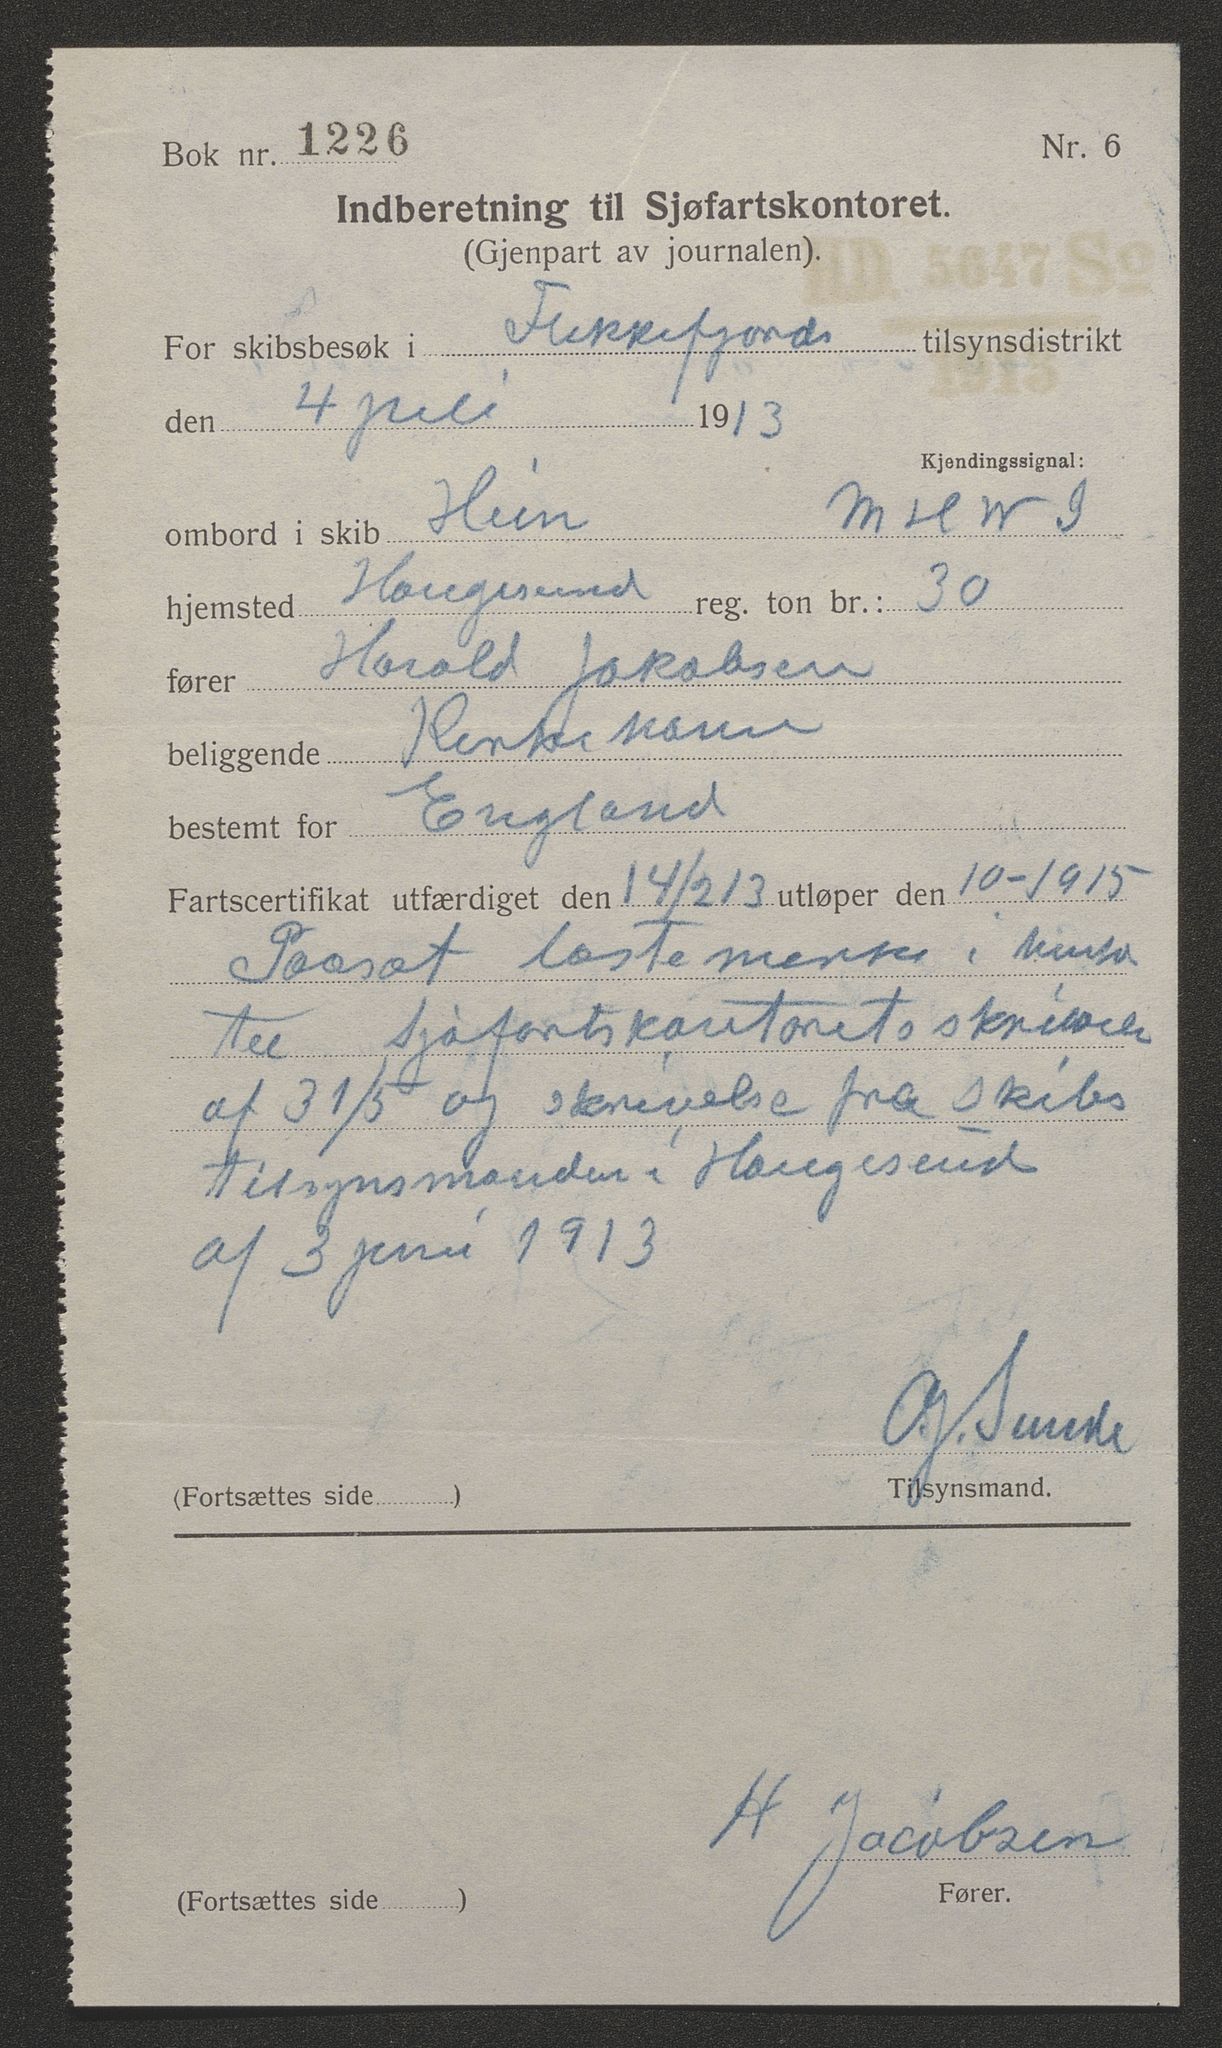 Bok nr. 1226 Nr. 6
Indberetning til Sjøfartskontoret.
(Gjenpart av journalen).
HD 5647 So
1913
For skibsbesøk i Flekkefjords tilsynsdistrikt
den 4 juli 1913
Kjendingssignal:
ombord i skib Hein M H W J
hjemsted Haugesund reg. ton br.: 30
fører Harald Jakobsen
beliggende Kirkehavn
bestemt for England
Fartscertifikat utfærdiget den 14/2 13 utløper den 10-1915
Paasat lastemerke i
til Sjøfartskontorets skrivelse
af 31/5 og skrivelse fra skibs
tilsynsmanden i Haugesund
af 3 juni 1913
O.J. Sunde
(Fortsættes side ) Tilsynsmand.
H Jacobsen
(Fortsættes side ) Fører.